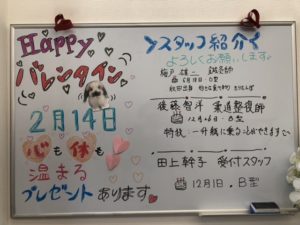 Happy
バレンタイン
2月14日
心も体も
温まる
プレゼントあります
スタッフ紹介
よろしくお願いします。
後藤智洋 柔道整復師
12月26日 B型
特技：一升瓶に乗ることができます
田上幹子 受付スタッフ
12月1日. B型